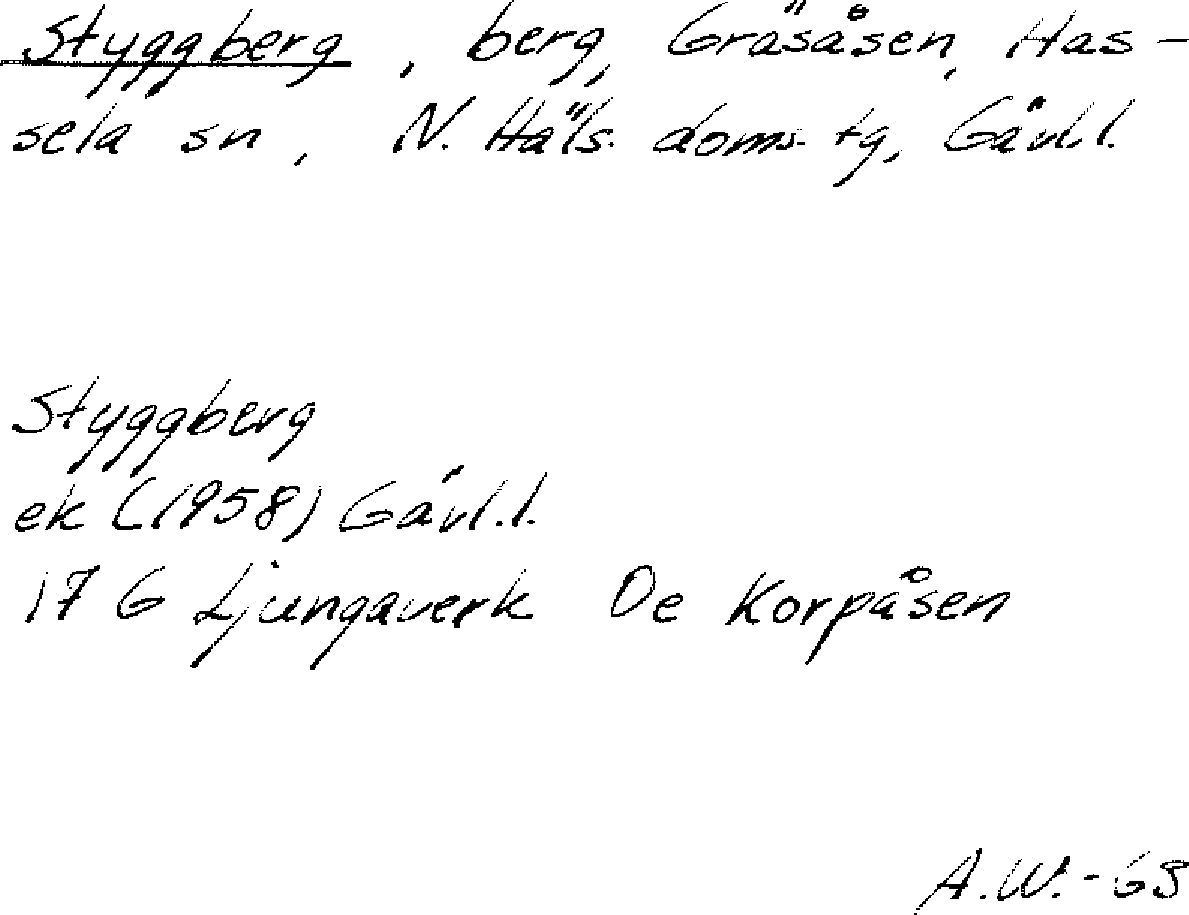 Styggberg, berg, Gräsåsen, Has-
sela sn, N. Häls. doms. tg, Gävl.l.
Styggberg
ek (1958) Gävl.l.
17 G Ljungaverk De Korpåsen
A.W.-68